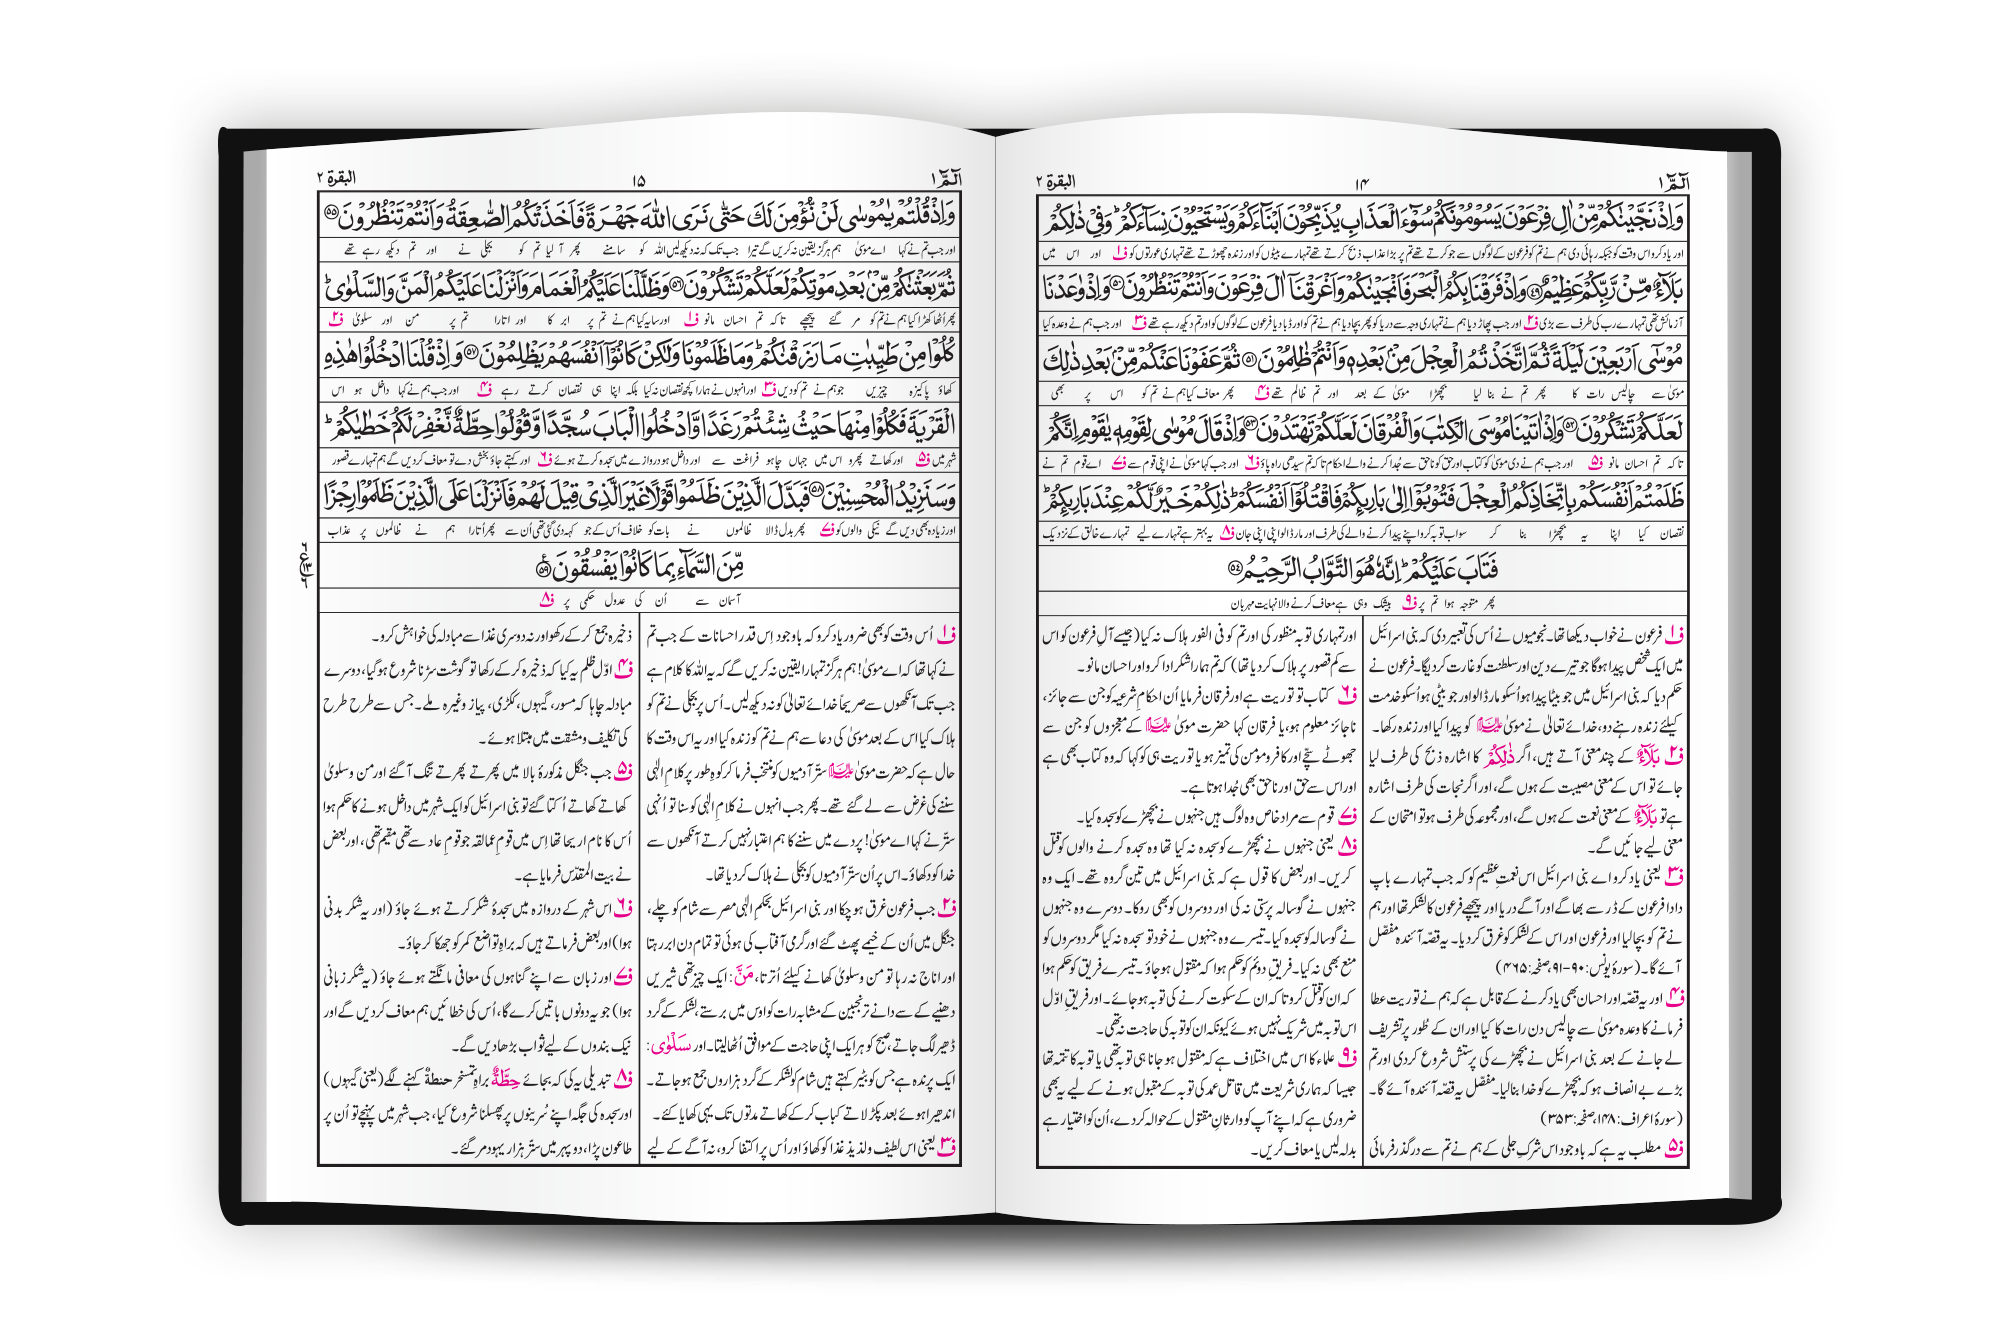 الٓمّٓ ۱
۱۴
البقرة ۲
وَاِذْ نَجَّيْنٰكُمْ مِّنْ اٰلِ فِرْعَوْنَ يَسُوْمُوْنَكُمْ سُوْٓءَ الْعَذَابِ يُذَبِّحُوْنَ اَبْنَآءَكُمْ وَيَسْتَحْيُوْنَ نِسَآءَكُمْ ؕ وَفِيْ ذٰلِكُمْ
اور یاد کرو اس وقت کو جبکہ رہائی دی ہم نے تم کو فرعون کے لوگوں سے جو کرتے تھے تم پر بڑا عذاب ذبح کرتے تھے تمہارے بیٹوں کو اور زندہ چھوڑتے تھے تمہاری عورتوں کو ف۱ اور اس میں
بَلَآءٌ مِّنْ رَّبِّكُمْ عَظِيْمٌ ﴿۴۹﴾ وَاِذْ فَرَقْنَا بِكُمُ الْبَحْرَ فَاَنْجَيْنٰكُمْ وَاَغْرَقْنَآ اٰلَ فِرْعَوْنَ وَاَنْتُمْ تَنْظُرُوْنَ ﴿۵۰﴾ وَاِذْ وٰعَدْنَا
آزمائش تھی تمہارے رب کی طرف سے بڑی ف۲ اور جب پھاڑ دیا ہم نے تمہاری وجہ سے دریا کو پھر بچا دیا ہم نے تم کو اور ڈبا دیا فرعون کے لوگوں کو اور تم دیکھ رہے تھے ف۳ اور جب ہم نے وعدہ کیا
مُوْسٰٓى اَرْبَعِيْنَ لَيْلَةً ثُمَّ اتَّخَذْتُمُ الْعِجْلَ مِنْۢ بَعْدِهٖ وَاَنْتُمْ ظٰلِمُوْنَ ﴿۵۱﴾ ثُمَّ عَفَوْنَا عَنْكُمْ مِّنْۢ بَعْدِ ذٰلِكَ
موسیٰ سے چالیس رات کا پھر تم نے بنا لیا بچھڑا موسیٰ کے بعد اور تم ظالم تھے ف۴ پھر معاف کیا ہم نے تم کو اس پر بھی
لَعَلَّكُمْ تَشْكُرُوْنَ ﴿۵۲﴾ وَاِذْ اٰتَيْنَا مُوْسَى الْكِتٰبَ وَالْفُرْقَانَ لَعَلَّكُمْ تَهْتَدُوْنَ ﴿۵۳﴾ وَاِذْ قَالَ مُوْسٰى لِقَوْمِهٖ يٰقَوْمِ اِنَّكُمْ
تا کہ تم احسان مانو ف۵ اور جب ہم نے دی موسیٰ کو کتاب اور حق کو ناحق سے جُدا کرنے والے احکام تا کہ تم سیدھی راہ پاؤ ف۶ اور جب کہا موسیٰ نے اپنی قوم سے ف۷ اے قوم تم نے
ظَلَمْتُمْ اَنْفُسَكُمْ بِاتِّخَاذِكُمُ الْعِجْلَ فَتُوْبُوْٓا اِلٰى بَارِئِكُمْ فَاقْتُلُوْٓا اَنْفُسَكُمْ ؕ ذٰلِكُمْ خَيْرٌ لَّكُمْ عِنْدَ بَارِئِكُمْ ؕ
نقصان کیا اپنا یہ بچھڑا بنا کر سو اب توبہ کرو اپنے پیدا کرنے والے کی طرف اور مار ڈالو اپنی اپنی جان ف۸ یہ بہتر ہے تمہارے لیے تمہارے خالق کے نزدیک
فَتَابَ عَلَيْكُمْ ؕ اِنَّهٗ هُوَ التَّوَّابُ الرَّحِيْمُ ﴿۵۴﴾
پھر متوجہ ہوا تم پر ف۹ بیشک وہی ہے معاف کرنے والا نہایت مہربان
ف۱ فرعون نے خواب دیکھا تھا۔ نجومیوں نے اُس کی تعبیر دی کہ بنی اسرائیل
میں ایک شخص پیدا ہوگا جو تیرے دین اور سلطنت کو غارت کر دیگا۔ فرعون نے
حکم دیا کہ بنی اسرائیل میں جو بیٹا پیدا ہو اُسکو مار ڈالو اور جو بیٹی ہو اُسکو خدمت
کیلئے زندہ رہنے دو، خدائے تعالیٰ نے موسیٰ علیہ السلام کو پیدا کیا اور زندہ رکھا۔
ف۲ بَلَآءٌ کے چند معنی آتے ہیں، اگر ذٰلِكُمْ کا اشارہ ذبح کی طرف لیا
جائے تو اس کے معنی مصیبت کے ہوں گے، اور اگر نجات کی طرف اشارہ
ہے تو بَلَآءٌ کے معنی نعمت کے ہوں گے، اور مجموعہ کی طرف ہو تو امتحان کے
معنی لیے جائیں گے۔
ف۳ یعنی یاد کرو اے بنی اسرائیل اس نعمتِ عظیم کو کہ جب تمہارے باپ
دادا فرعون کے ڈر سے بھاگے اور آگے دریا اور پیچھے فرعون کا لشکر تھا اور ہم
نے تم کو بچا لیا اور فرعون اور اس کے لشکر کو غرق کر دیا۔ یہ قصّہ آئندہ مفصّل
آئے گا۔ (سورۂ یونس: ۹۰-۹۱، صفحہ: ۴۶۵)
ف۴ اور یہ قصّہ اور احسان بھی یاد کرنے کے قابل ہے کہ ہم نے توریت عطا
فرمانے کا وعدہ موسیٰ سے چالیس دن رات کا کیا اور ان کے طُور پر تشریف
لے جانے کے بعد بنی اسرائیل نے بچھڑے کی پرستش شروع کر دی اور تم
بڑے بے انصاف ہو کہ بچھڑے کو خدا بنا لیا۔ مفصّل یہ قصّہ آئندہ آئے گا۔
(سورۂ اعراف: ۱۴۸، صفحہ: ۳۵۳)
ف۵ مطلب یہ ہے کہ باوجود اس شرکِ جلی کے ہم نے تم سے درگذر فرمائی
اور تمہاری توبہ منظور کی اور تم کو فی الفور ہلاک نہ کیا (جیسے آلِ فرعون کو اس
سے کم قصور پر ہلاک کر دیا تھا) کہ تم ہمارا شکر ادا کرو اور احسان مانو۔
ف۶ کتاب تو توریت ہے اور فرقان فرمایا اُن احکامِ شرعیہ کو جن سے جائز،
ناجائز معلوم ہو، یا فرقان کہا حضرت موسیٰ علیہ السلام کے معجزوں کو جن سے
جھوٹے سچے اور کافر و مومن کی تمیز ہو یا توریت ہی کو کہا کہ وہ کتاب بھی ہے
اور اس سے حق اور ناحق بھی جُدا ہوتا ہے۔
ف۷ قوم سے مراد خاص وہ لوگ ہیں جنہوں نے بچھڑے کو سجدہ کیا۔
ف۸ یعنی جنہوں نے بچھڑے کو سجدہ نہ کیا تھا وہ سجدہ کرنے والوں کو قتل
کریں۔ اور بعض کا قول ہے کہ بنی اسرائیل میں تین گروہ تھے۔ ایک وہ
جنہوں نے گوسالہ پرستی نہ کی اور دوسروں کو بھی روکا۔ دوسرے وہ جنہوں
نے گوسالہ کو سجدہ کیا۔ تیسرے وہ جنہوں نے خود تو سجدہ نہ کیا مگر دوسروں کو
منع بھی نہ کیا۔ فریقِ دوئم کو حکم ہوا کہ مقتول ہوجاؤ۔ تیسرے فریق کو حکم ہوا
کہ ان کو قتل کرو تا کہ ان کے سکوت کرنے کی توبہ ہو جائے۔ اور فریقِ اوّل
اس توبہ میں شریک نہیں ہوئے کیونکہ ان کو توبہ کی حاجت نہ تھی۔
ف۹ علماء کا اس میں اختلاف ہے کہ مقتول ہو جانا ہی توبہ تھی یا توبہ کا تتمہ تھا
جیسا کہ ہماری شریعت میں قاتل عمد کی توبہ کے مقبول ہونے کے لیے یہ بھی
ضروری ہے کہ اپنے آپ کو وارثانِ مقتول کے حوالہ کر دے، اُن کو اختیار ہے
بدلہ لیں یا معاف کریں۔
الٓمّٓ ۱
۱۵
البقرة ۲
وَاِذْ قُلْتُمْ يٰمُوْسٰى لَنْ نُّؤْمِنَ لَكَ حَتّٰى نَرَى اللّٰهَ جَهْرَةً فَاَخَذَتْكُمُ الصّٰعِقَةُ وَاَنْتُمْ تَنْظُرُوْنَ ﴿۵۵﴾
اور جب تم نے کہا اے موسیٰ ہم ہرگز یقین نہ کریں گے تیرا جب تک کہ نہ دیکھ لیں اللہ کو سامنے پھر آ لیا تم کو بجلی نے اور تم دیکھ رہے تھے
ثُمَّ بَعَثْنٰكُمْ مِّنْۢ بَعْدِ مَوْتِكُمْ لَعَلَّكُمْ تَشْكُرُوْنَ ﴿۵۶﴾ وَظَلَّلْنَا عَلَيْكُمُ الْغَمَامَ وَاَنْزَلْنَا عَلَيْكُمُ الْمَنَّ وَالسَّلْوٰى ؕ
پھر اُٹھا کھڑا کیا ہم نے تم کو مر گئے پیچھے تا کہ تم احسان مانو ف۱ اور سایہ کیا ہم نے تم پر ابر کا اور اتارا تم پر من اور سلویٰ ف۲
كُلُوْا مِنْ طَيِّبٰتِ مَا رَزَقْنٰكُمْ ؕ وَمَا ظَلَمُوْنَا وَلٰكِنْ كَانُوْٓا اَنْفُسَهُمْ يَظْلِمُوْنَ ﴿۵۷﴾ وَاِذْ قُلْنَا ادْخُلُوْا هٰذِهِ
کھاؤ پاکیزہ چیزیں جو ہم نے تم کو دیں ف۳ اور انہوں نے ہمارا کچھ نقصان نہ کیا بلکہ اپنا ہی نقصان کرتے رہے ف۴ اور جب ہم نے کہا داخل ہو اس
الْقَرْيَةَ فَكُلُوْا مِنْهَا حَيْثُ شِئْتُمْ رَغَدًا وَّادْخُلُوا الْبَابَ سُجَّدًا وَّقُوْلُوْا حِطَّةٌ نَّغْفِرْ لَكُمْ خَطٰيٰكُمْ ؕ
شہر میں ف۵ اور کھاتے پھرو اس میں جہاں چاہو فراغت سے اور داخل ہو دروازے میں سجدہ کرتے ہوئے ف۶ اور کہتے جاؤ بخش دے تو معاف کر دیں گے ہم تمہارے قصور
وَسَنَزِيْدُ الْمُحْسِنِيْنَ ﴿۵۸﴾ فَبَدَّلَ الَّذِيْنَ ظَلَمُوْا قَوْلًا غَيْرَ الَّذِيْ قِيْلَ لَهُمْ فَاَنْزَلْنَا عَلَى الَّذِيْنَ ظَلَمُوْا رِجْزًا
اور زیادہ بھی دیں گے نیکی والوں کو ف۷ پھر بدل ڈالا ظالموں نے بات کو خلاف اُس کے جو کہہ دی گئی تھی اُن سے پھر اُتارا ہم نے ظالموں پر عذاب
مِّنَ السَّمَآءِ بِمَا كَانُوْا يَفْسُقُوْنَ ﴿۵۹﴾
آسمان سے اُن کی عدول حکمی پر ف۸
ف۱ اُس وقت کو بھی ضرور یاد کرو کہ باوجود اِس قدر احسانات کے جب تم
نے کہا تھا کہ اے موسیٰ! ہم ہرگز تمہارا یقین نہ کریں گے کہ یہ اللہ کا کلام ہے
جب تک آنکھوں سے صریحاً خدائے تعالیٰ کو نہ دیکھ لیں۔ اُس پر بجلی نے تم کو
ہلاک کیا اس کے بعد موسیٰ کی دعا سے ہم نے تم کو زندہ کیا اور یہ اس وقت کا
حال ہے کہ حضرت موسیٰ علیہ السلام ستّر آدمیوں کو منتخب فرما کر کوہِ طور پر کلامِ الٰہی
سننے کی غرض سے لے گئے تھے۔ پھر جب انہوں نے کلامِ الٰہی کو سنا تو اُنہی
ستّر نے کہا اے موسیٰ! پردے میں سننے کا ہم اعتبار نہیں کرتے آنکھوں سے
خدا کو دکھاؤ۔ اس پر اُن ستّر آدمیوں کو بجلی نے ہلاک کر دیا تھا۔
ف۲ جب فرعون غرق ہو چکا اور بنی اسرائیل بحکمِ الٰہی مصر سے شام کو چلے،
جنگل میں اُن کے خیمے پھٹ گئے اور گرمی آفتاب کی ہوئی تو تمام دن ابر رہتا
اور اناج نہ رہا تو من و سلویٰ کھانے کیلئے اُترتا، مَنَّ: ایک چیز تھی شیریں
دھنیے کے سے دانے ترنجبین کے مشابہ رات کو اوس میں برستے، لشکر کے گرد
ڈھیر لگ جاتے، صبح کو ہر ایک اپنی حاجت کے موافق اُٹھا لیتا۔ اور سَلْوٰى:
ایک پرندہ ہے جس کو بٹیر کہتے ہیں شام کو لشکر کے گرد ہزاروں جمع ہو جاتے۔
اندھیرا ہوئے بعد پکڑ لاتے کباب کر کے کھاتے مدتوں تک یہی کھایا کئے۔
ف۳ یعنی اس لطیف و لذیذ غذا کو کھاؤ اور اُس پر اکتفا کرو، نہ آگے کے لیے
ذخیرہ جمع کر کے رکھو اور نہ دوسری غذا سے مبادلہ کی خواہش کرو۔
ف۴ اوّل ظلم یہ کیا کہ ذخیرہ کر کے رکھا تو گوشت سڑنا شروع ہو گیا، دوسرے
مبادلہ چاہا کہ مسور، گیہوں، ککڑی، پیاز وغیرہ ملے۔ جس سے طرح طرح
کی تکلیف و مشقت میں مبتلا ہوئے۔
ف۵ جب جنگل مذکورۂ بالا میں پھرتے پھرتے تنگ آ گئے اور من و سلویٰ
کھاتے کھاتے اُکتا گئے تو بنی اسرائیل کو ایک شہر میں داخل ہونے کا حکم ہوا
اُس کا نام اریحا تھا اِس میں قومِ عمالقہ جو قومِ عاد سے تھی مقیم تھی، اور بعض
نے بیت المقدّس فرمایا ہے۔
ف۶ اس شہر کے دروازہ میں سجدۂ شکر کرتے ہوئے جاؤ (اور یہ شکر بدنی
ہوا) اور بعض فرماتے ہیں کہ براہِ تواضع کمر کو جھکا کر جاؤ۔
ف۷ اور زبان سے اپنے گناہوں کی معافی مانگتے ہوئے جاؤ (یہ شکر زبانی
ہوا) جو یہ دونوں باتیں کرے گا، اُس کی خطائیں ہم معاف کر دیں گے اور
نیک بندوں کے لیے ثواب بڑھا دیں گے۔
ف۸ تبدیلی یہ کی کہ بجائے حِطَّةٌ براہِ تمسخر حنطة کہنے لگے (یعنی گیہوں)
اور سجدہ کی جگہ اپنے سُرینوں پر پھسلنا شروع کیا، جب شہر میں پہنچے تو اُن پر
طاعون پڑا، دوپہر میں ستّر ہزار یہود مر گئے۔